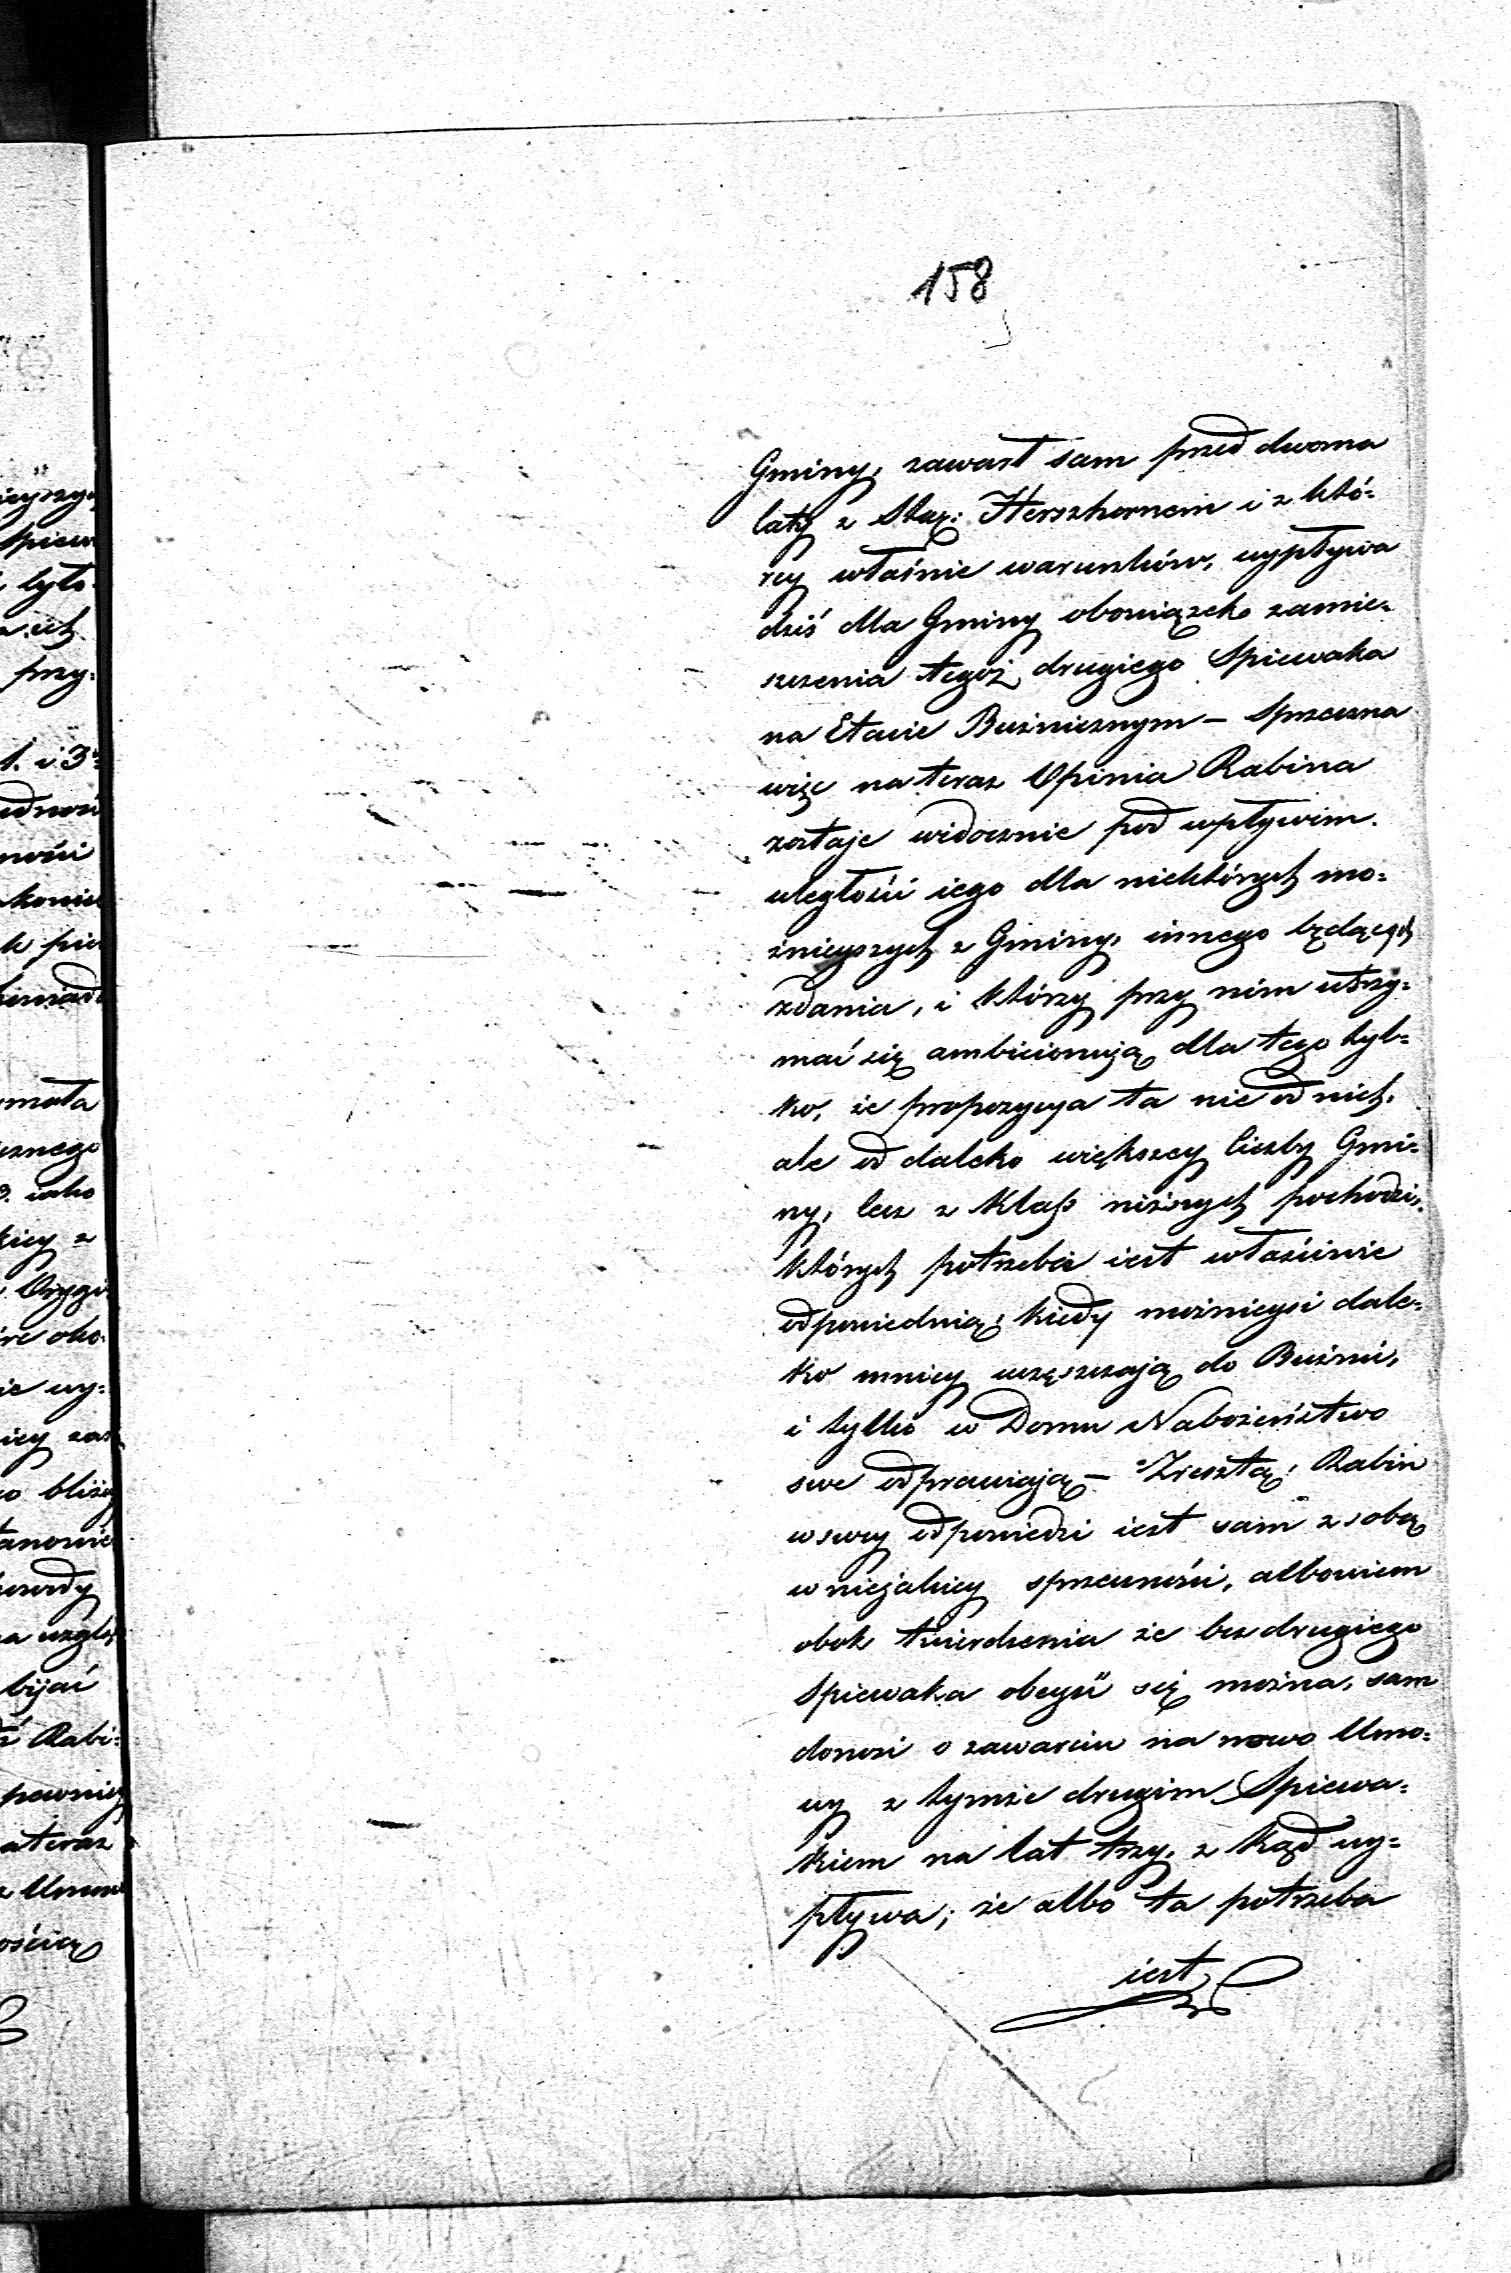 158
Gminy, zawarł sam przed dwoma
laty z Star: Herszhornem i z któ=
rey właśnie warunków, wypływa
dziś dla Gminy obowiązek zamie=
szczenia tegoż drugiego Spiewaka
na Etacie Bużnicznym – Sprzeczna
więc na teraz Opinia Rabina
zostaje widocznie pod wpływem
uległości iego dla niektórych mo=
żnieyszych z Gminy, innego będących
zdania, i którzy przy nim utrzy=
mać się ambicionują dla tego tyl=
ko, że propozycya ta nie od nich,
ale od daleko większey liczby Gmi=
ny, lecz z Klass niższych pochodzi,
których potrzebie iest właściwie
odpowiednią; kiedy możnieysi dale=
ko mniey uczęszczają do Bużnic,
i tylko w Domu Nabożeństwo
swe odprawiają – Zresztą; Rabin
w swey odpowiedzi iest sam z sobą
w niejakiey sprzeczności, albowiem
obok twierdzenia że bez drugiego
Spiewaka obeyść się można, sam
donosi o zawarciu na nowo Umo=
wy z tymże drugim Spiewa=
kiem na lat trzy, z kąd wy=
pływa; że albo ta potrzeba
iest